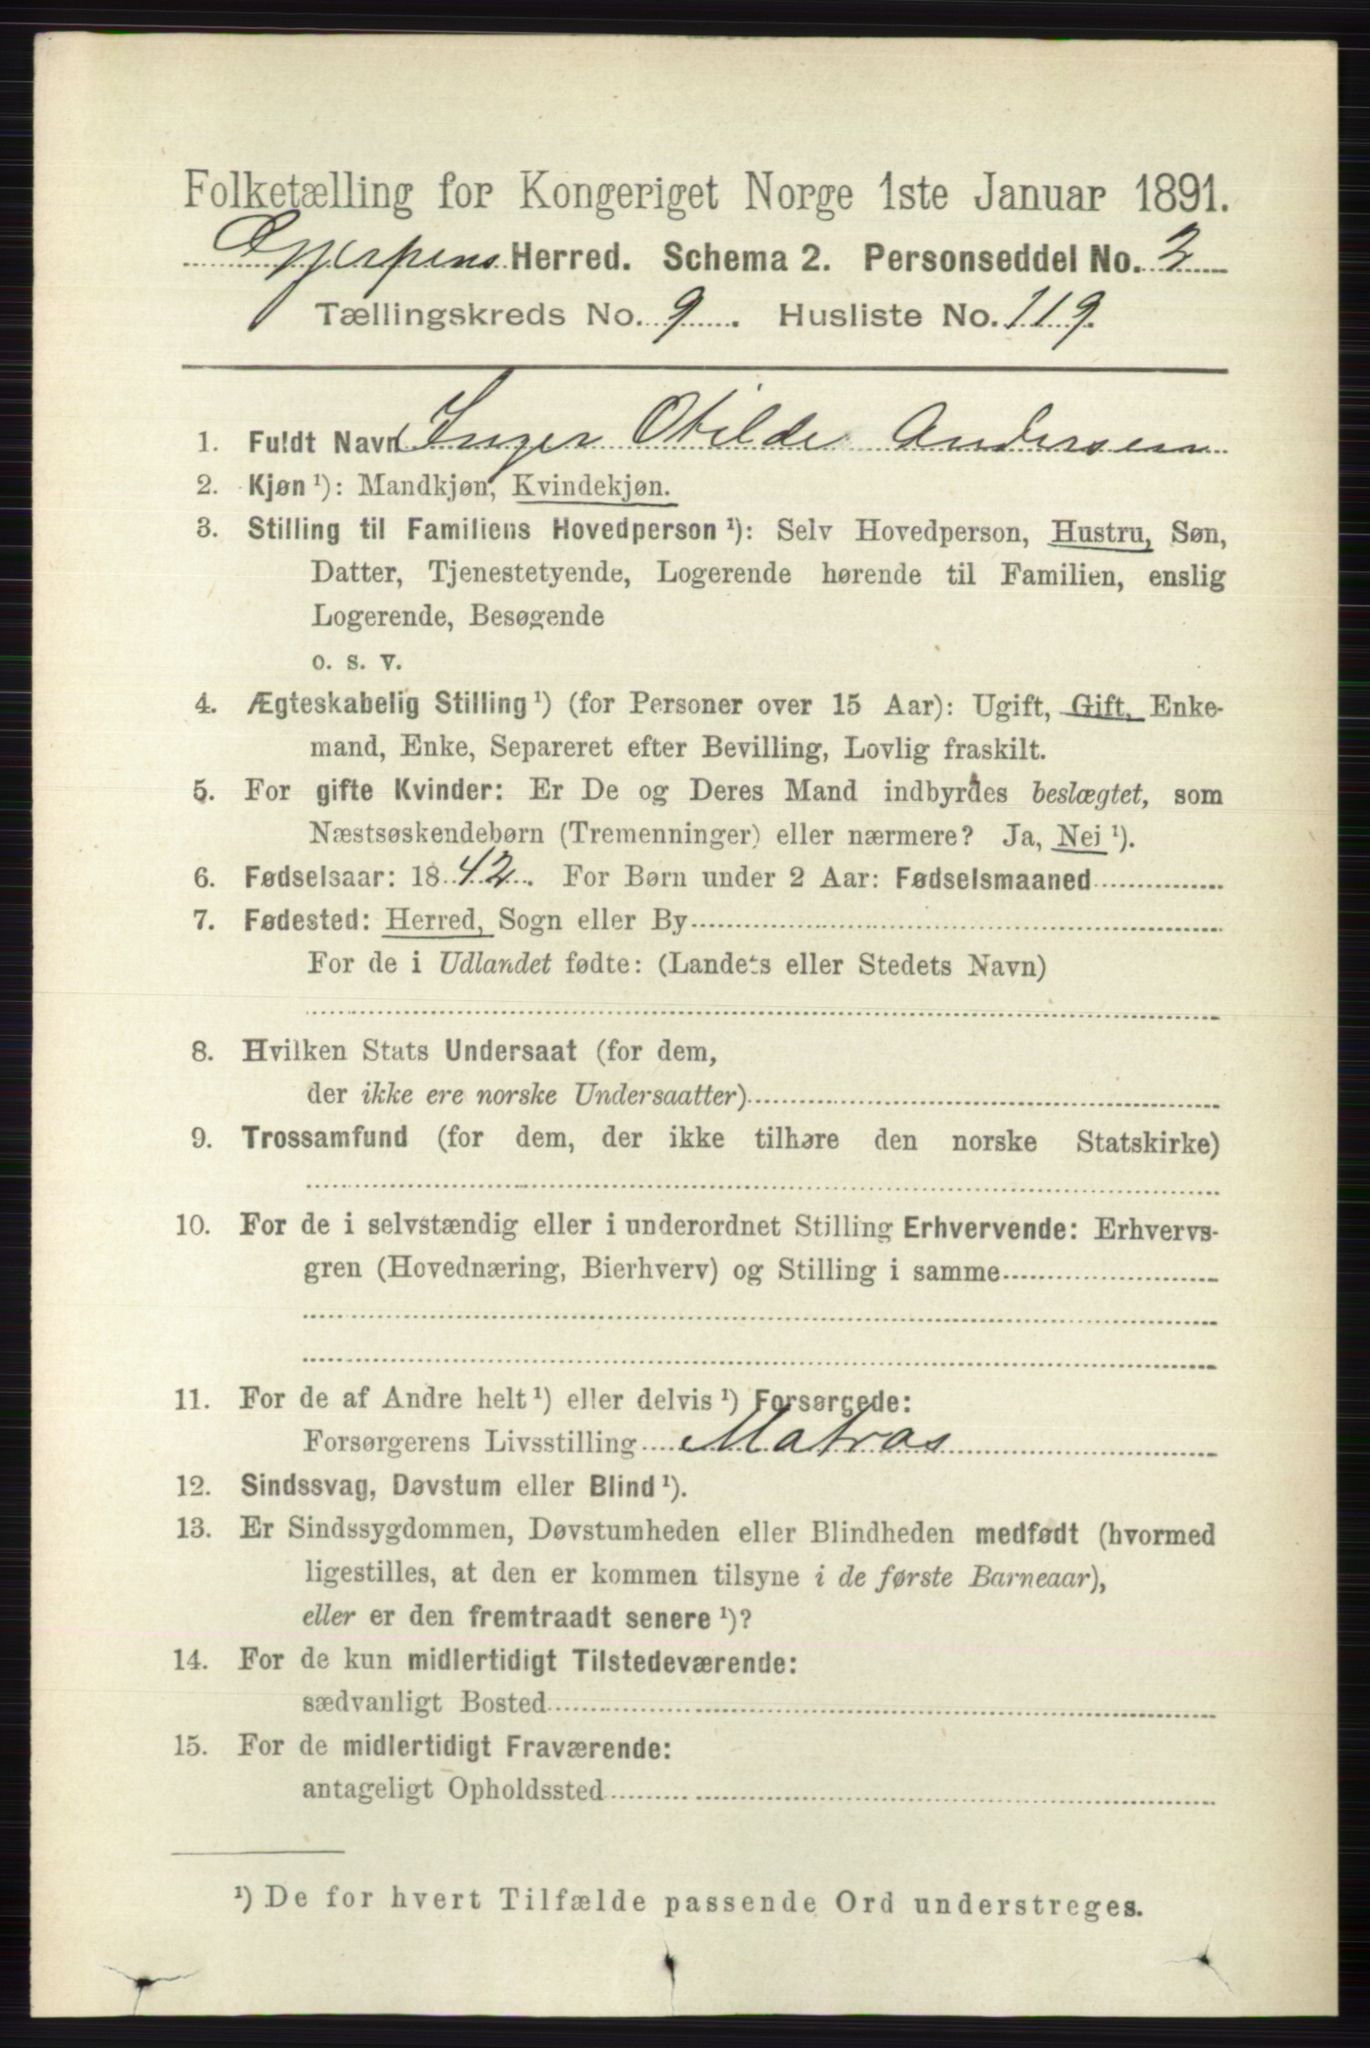 Folketælling for Kongeriget Norge 1ste Januar 1891.
Gjerpens Herred. Schema 2. Personseddel No. 2
Tællingskreds No. 9. Husliste No. 119.
1. Fuldt Navn Inger Otilde Andersen
2. Kjøn ¹): Mandkjøn, Kvindekjøn.
3. Stilling til Familiens Hovedperson ¹): Selv Hovedperson, Hustru, Søn,
Datter, Tjenestetyende, Logerende hørende til Familien, enslig
Logerende, Besøgende
o. s. v.
4. Ægteskabelig Stilling ¹) (for Personer over 15 Aar): Ugift, Gift, Enke-
mand, Enke, Separeret efter Bevilling, Lovlig fraskilt.
5. For gifte Kvinder: Er De og Deres Mand indbyrdes beslægtet, som
Næstsøskendebørn (Tremenninger) eller nærmere? Ja, Nei ¹).
6. Fødselsaar: 1842. For Børn under 2 Aar: Fødselsmaaned
7. Fødested: Herred, Sogn eller By
For de i Udlandet fødte: (Landets eller Stedets Navn)
8. Hvilken Stats Undersaat (for dem,
der ikke ere norske Undersaatter)
9. Trossamfund (for dem, der ikke tilhøre den norske Statskirke)
10. For de i selvstændig eller i underordnet Stilling Erhvervende: Erhvervs-
gren (Hovednæring, Bierhverv) og Stilling i samme
11. For de af Andre helt ¹) eller delvis ¹) Forsørgede:
Forsørgerens Livsstilling Matros
12. Sindssvag, Døvstum eller Blind ¹).
13. Er Sindssygdommen, Døvstumheden eller Blindheden medfødt (hvormed
ligestilles, at den er kommen tilsyne i de første Barneaar),
eller er den fremtraadt senere ¹)?
14. For de kun midlertidigt Tilstedeværende:
sædvanligt Bosted
15. For de midlertidigt Fraværende:
antageligt Opholdssted
¹) De for hvert Tilfælde passende Ord understreges.